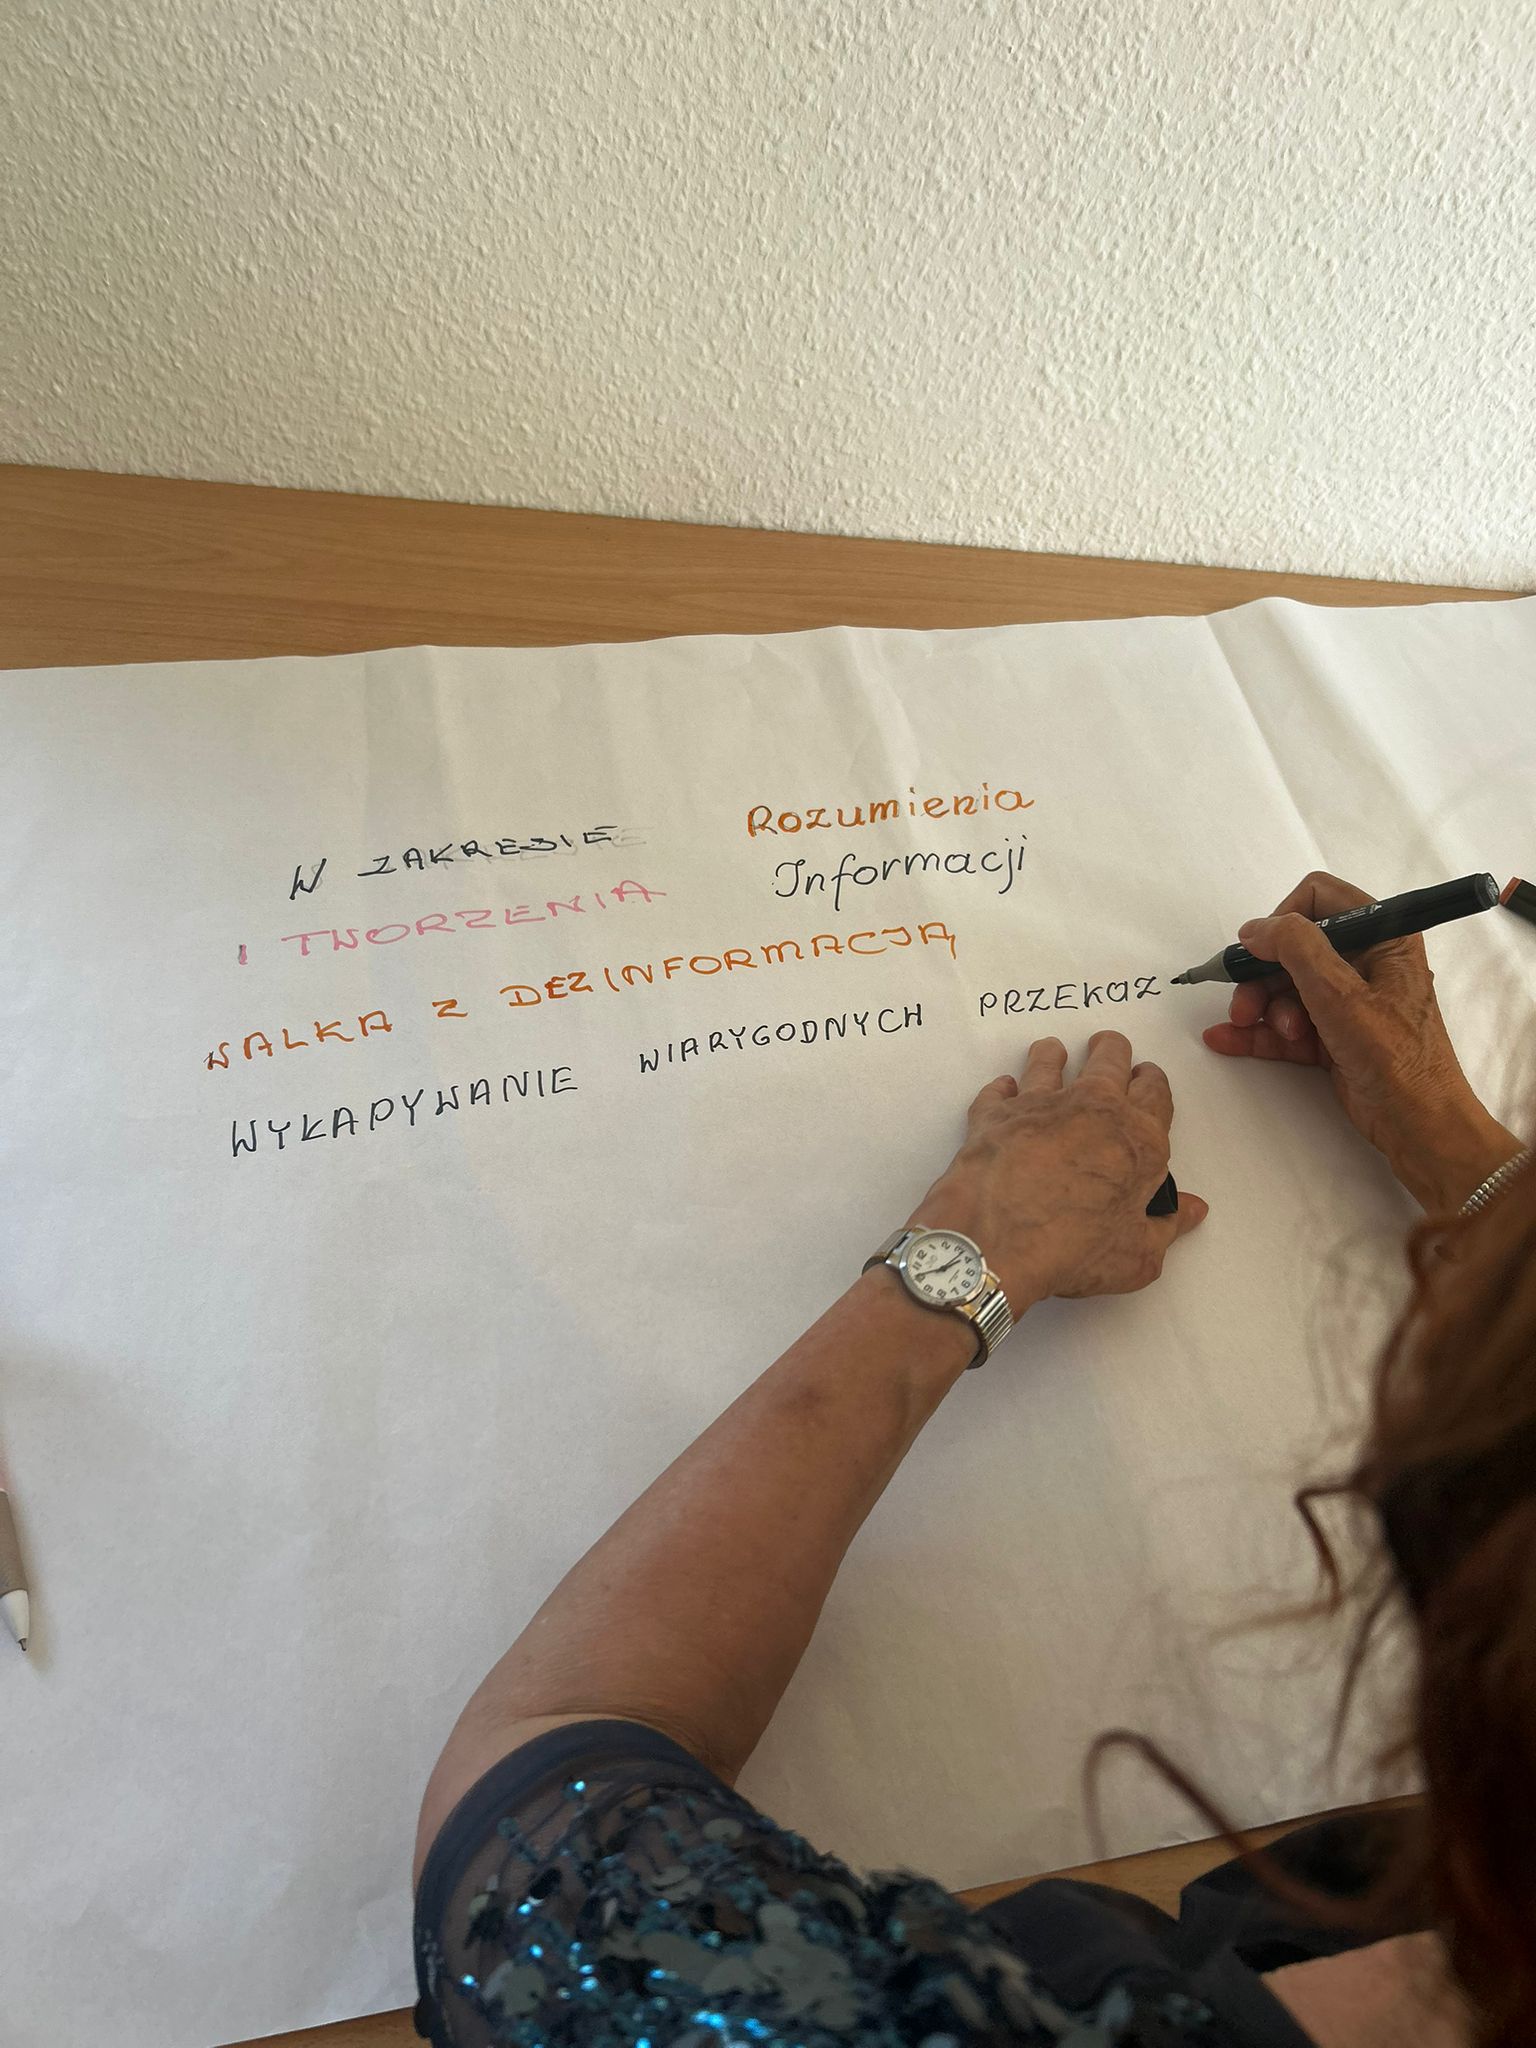 W ZAKRESIE Rozumienia
I TWORZENIA Informacji
WALKA Z DEZINFORMACJĄ
WYKAPYWANIE WIARYGODNYCH PRZEKAZ